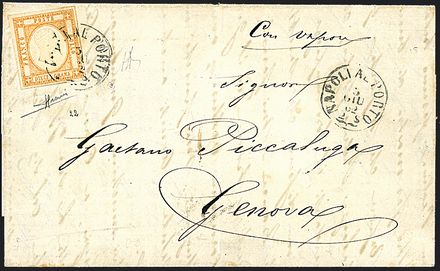 FRANCO
POSTA
BOLLO
NAPOLI AL PORTO
Con vapore
Signor
NAPOLI AL PORTO
5
GIU
62
Gaetano Piccaluga
Genova